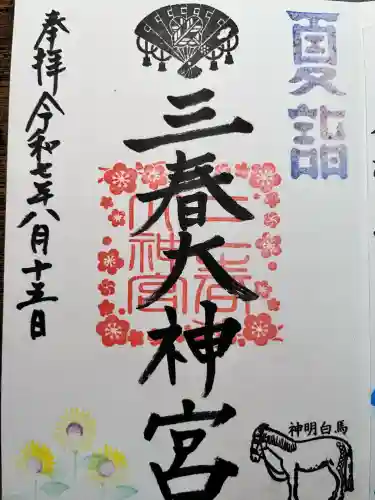 夏詣
三春大神宮
奉拝 令和七年八月十五日
三春大神宮
神明白馬